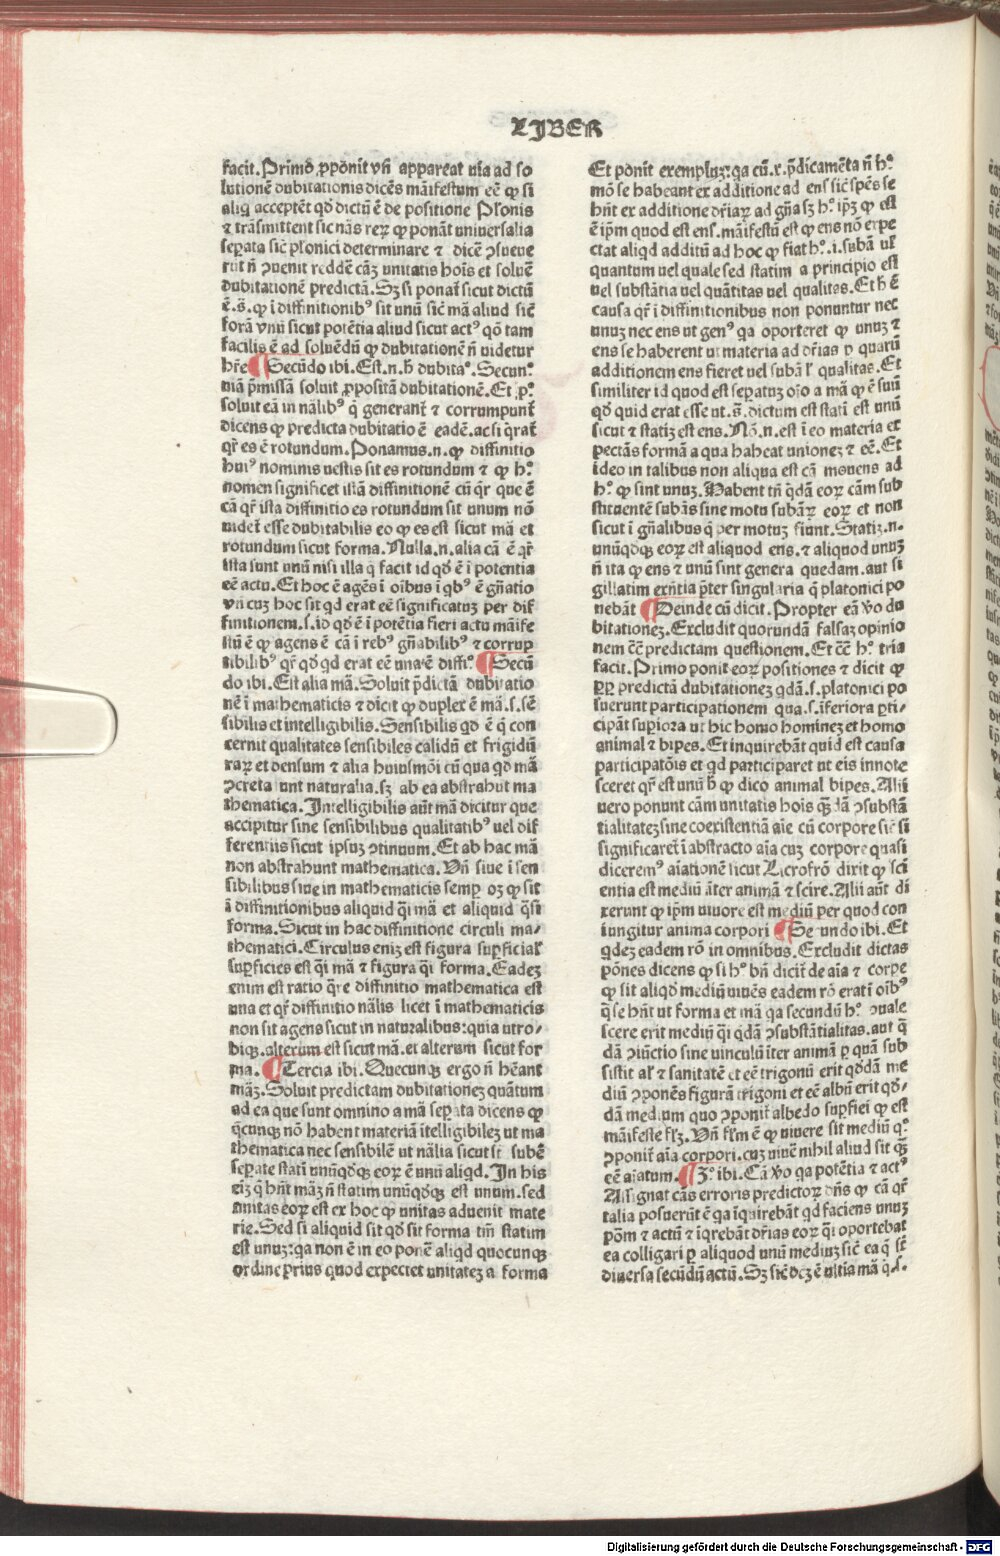 LIBER
facit. Primo ꝓponit vñ appareat uia ad so
lutionē dubitationis dicēs māifestum eē ꝙ si
aliq̄ acceptēt qd̓ dictū ē de positione Plōnis
⁊ trāsmittent sic nās reꝝ ꝙ ponāt uniuersalia
seꝑata sic̄ plōnici determinare ⁊ dicē ꝯsueue
rūt ñ ꝯuenit reddē cāꝫ unitatis hoīs et soluē
dubitationē predictā. Sꝫ si ponat̄ sicut dictū
ē.s̄. ꝙ ī diffinitionibꝰ sit unū sic̄ mā aliud sic̄
forā vnū sicut potētia aliud sicut actꝰ qō tam
facilis ē ad soluēdū ꝙ dubitationē ñ uidetur
hr̄e ¶ Secūdo ibi. Est.n.h̄ dubitaº. Secunº
uiā p̄missā soluit ꝓpositā dubitationē. Et pº
soluit eā in nālibꝰ q̄ generant̄ ⁊ corrumpunt̄
dicens ꝙ predicta dubitatio ē eadē. ac si q̄rat̄
qr̄ es ē rotundum. Ponamus.n.ꝙ diffinitio
huiꝰ nominis uestis sit es rotundum ⁊ ꝙ hº
nomen significet illā diffinitionē cū q̄r que ē
cā qr̄ ista diffinitio es rotundum sit unum nō
uidet̄ esse dubitabilis eo ꝙ es est sicut mā et
rotundum sicut forma. Nulla.n.alia cā ē qr̄
ista sunt unū nisi illa q̄ facit id qd̓ ē ī potentia
eē actu. Et hoc ē agēs ī oībus ī qbꝰ ē gñatio
vñ cuꝫ hoc sit qd erat eē significatuꝫ per dif
finitionem.s.id qd̓ ē ī potētia fieri actu māife
stū ē ꝙ agens ē cā ī rebꝰ gñabilibꝰ ⁊ corrup
tibilibꝰ qr̄ qd̓ qd erat eē una ē diffiº. ¶ Secū
do ibi. Est alia mā. Soluit p̄dictā dubitatio
nē ī mathematicis ⁊ dicit ꝙ duplex ē mā.s.sē
sibilis et intelligibilis. Sensibilis qd̓ ē q̄ con
cernit qualitates sensibiles calidū et frigidū
raꝝ et densum ⁊ alia huiusmōi cū qua qd̓ mā
ꝯcreta sunt naturalia.sꝫ ab ea abstrahūt ma
thematica. Intelligibilis aūt mā dicitur que
accipitur sine sensibilibus qualitatibꝰ uel dif
ferentiis sicut ipsuꝫ ꝯtinuum. Et ab hac mā
non abstrahunt mathematica. Vñ siue ī sen
sibilibus siue in mathematicis semꝑ oꝫ ꝙ sit
ī diffinitionibus aliquid q̄i mā et aliquid q̄si
forma. Sicut in hac diffinitione circuli ma-
thematici. Circulus eniꝫ est figura suꝑficial̓
suꝑficies est q̄i mā ⁊ figura q̄i forma. Eadeꝫ
enim est ratio q̄re diffinitio mathematica est
una et qr̄ diffinitio nālis licet ī mathematicis
non sit agens sicut in naturalibus: quia utro-
biqꝫ. alterum est sicut mā. et alterum sicut for
ma. ¶ Tercia ibi. Quecunqꝫ ergo ñ hēant
māꝫ. Soluit predictam dubitationeꝫ quātum
ad ea que sunt omnino a mā seꝑata dicens ꝙ
q̄cunqꝫ nō habent materiā ītelligibileꝫ ut ma
thematica nec sensibilē ut nālia sicut st̄ subē
seꝑate statī unūqd̓qꝫ eoꝝ ē unū aliqd. In his
eiꝫ q̄ hñt māꝫ ñ statim unūqd̓qꝫ est unum. sed
unitas eoꝝ est ex hoc ꝙ unitas aduenit mate
rie. Sed si aliquid sit qd̓ sit forma tm̄ statim
est unuꝫ: qa non ē in eo ponē aliqd quocunqꝫ
ordine prius quod expectet unitateꝫ a forma
Et ponit exempluꝫ: qa cū.x. p̄dicamēta ñ hº
mō se habeant ex additione ad ens sic̄ spēs se
hñt ex additione dr̄iaꝝ ad gn̄a sꝫ hº ip̄ꝫ ꝙ est
ē ip̄m quod est ens. māifestū est ꝙ ens nō expe
ctat aliqd additū ad hoc ꝙ fiat hº.i.subā ul̓
quantum uel quale sed statim a principio est
uel substātia uel quātitas uel qualitas. Et h̄ ē
causa qr̄ ī diffinitionibus non ponuntur nec
unuꝫ nec ens ut genꝰ qa oporteret ꝙ unuꝫ ⁊
ens se haberent ut materia ad dr̄ias ꝑ quarū
additionem ens fieret uel subā l̓ qualitas. Et
similiter id quod est seꝑatuꝫ oīo a mā ꝙ ē suū
qd̓ quid erat esse ut.s̄. dictum est statī est unū
sicut ⁊ statiꝫ est ens. Nō.n.est ī eo materia ex
pectās formā a qua habeat unioneꝫ ⁊ eē. Et
ideo in talibus non aliqua est cā mouens ad
hº ꝙ sint unuꝫ. Habent tñ q̄dā eoꝝ cām sub
stituentē subās sine motu subāꝝ eoꝝ et non
sicut ī gñalibus q̄ per motuꝫ fiunt. Statiꝫ.n.
unūqd̓qꝫ eoꝝ est aliquod ens. ⁊ aliquod unuꝫ
ñ ita ꝙ ens ⁊ unū sint genera quedam. aut si
gillatim exñtia p̄ter singularia q̄ platonici po
nebāt ¶ Deinde cū dicit. Propter eā v̓o du
bitationeꝫ. Excludit quorundā falsaꝫ opinio
nem cc̄ predictam questionem. Et cc̄ hº tria
facit. Primo ponit eoꝝ positiones ⁊ dicit ꝙ
ꝓp̄ predictā dubitationeꝫ qdā.s.platonici po
suerunt participationem qua.s.īferiora ꝑti-
cipāt suꝑiora ut hic homo homineꝫ et homo
animal ⁊ bipes. Et inquirebāt quid est causa
participatōis et qd participaret ut eis innote
sceret qr̄ est unū h̄ ꝙ dico animal bipes. Alii
uero ponunt cām unitatis hoīs quādā ꝯsubstā
tialitateꝫ sine coexistentiā aīe cū corpore sic̄ si
significaret̄ ī abstracto aīa cuꝫ corpore quasi
diceremꝰ aīationē sicut Licrofrō dixit ꝙ sci
entia est mediū īter animā ⁊ scire. Alii aūt di
xerunt ꝙ ip̄m uiuere est mediū per quod con
iungitur anima corpori ¶ Secundo ibi. Et
qdeꝫ eadem rō in omnibus. Excludit dictas
pōnes dicens ꝙ si hº bñ dicit̄ de aīa ⁊ corpe
ꝙ sit aliqd̓ mediū uniuēs eadem rō erat ī oībꝰ
q̄ se hñt ut forma et mā qa secundū hº ꝯuale
scere erit mediū q̄i qdā ꝯsubstātialitas. aut q̄
dā ꝯiūctio siue uinculū īter animā ꝑ quā sub
sistit al̓ ⁊ sanitatē et eē trigonū erit qd̓dā me
diū ꝯponēs figurā trigoni et eē albū erit qd̓-
dā medium quo ꝯponit̄ albedo suꝑfiei ꝙ est
māifeste fl̓ꝫ. Vñ fl̓m ē ꝙ uiuere sit mediū qº
ꝯponit̄ aīa corpori. cuꝫ uiuē nihil aliud sit qꝫ
eē aīatum. ¶ 3º ibi. Cā v̓o qa potētia ⁊ actꝰ
Assignat cās erroris predictoꝝ dn̄s ꝙ cā qr̄
talia posuerūt ē qa īquirebāt qd faciens unuꝫ
pōm ⁊ actū ⁊ īqrebāt dr̄ias eoꝝ q̄i oportebat
ea colligari ꝑ aliquod unū mediuꝫ sic̄ ea q̄ st̄
diuersa secūdū actū. Sꝫ sic̄ dcꝫ ē ultīa mā q̄.s.
Digitalisierung gefördert durch die Deutsche Forschungsgemeinschaft - DFG